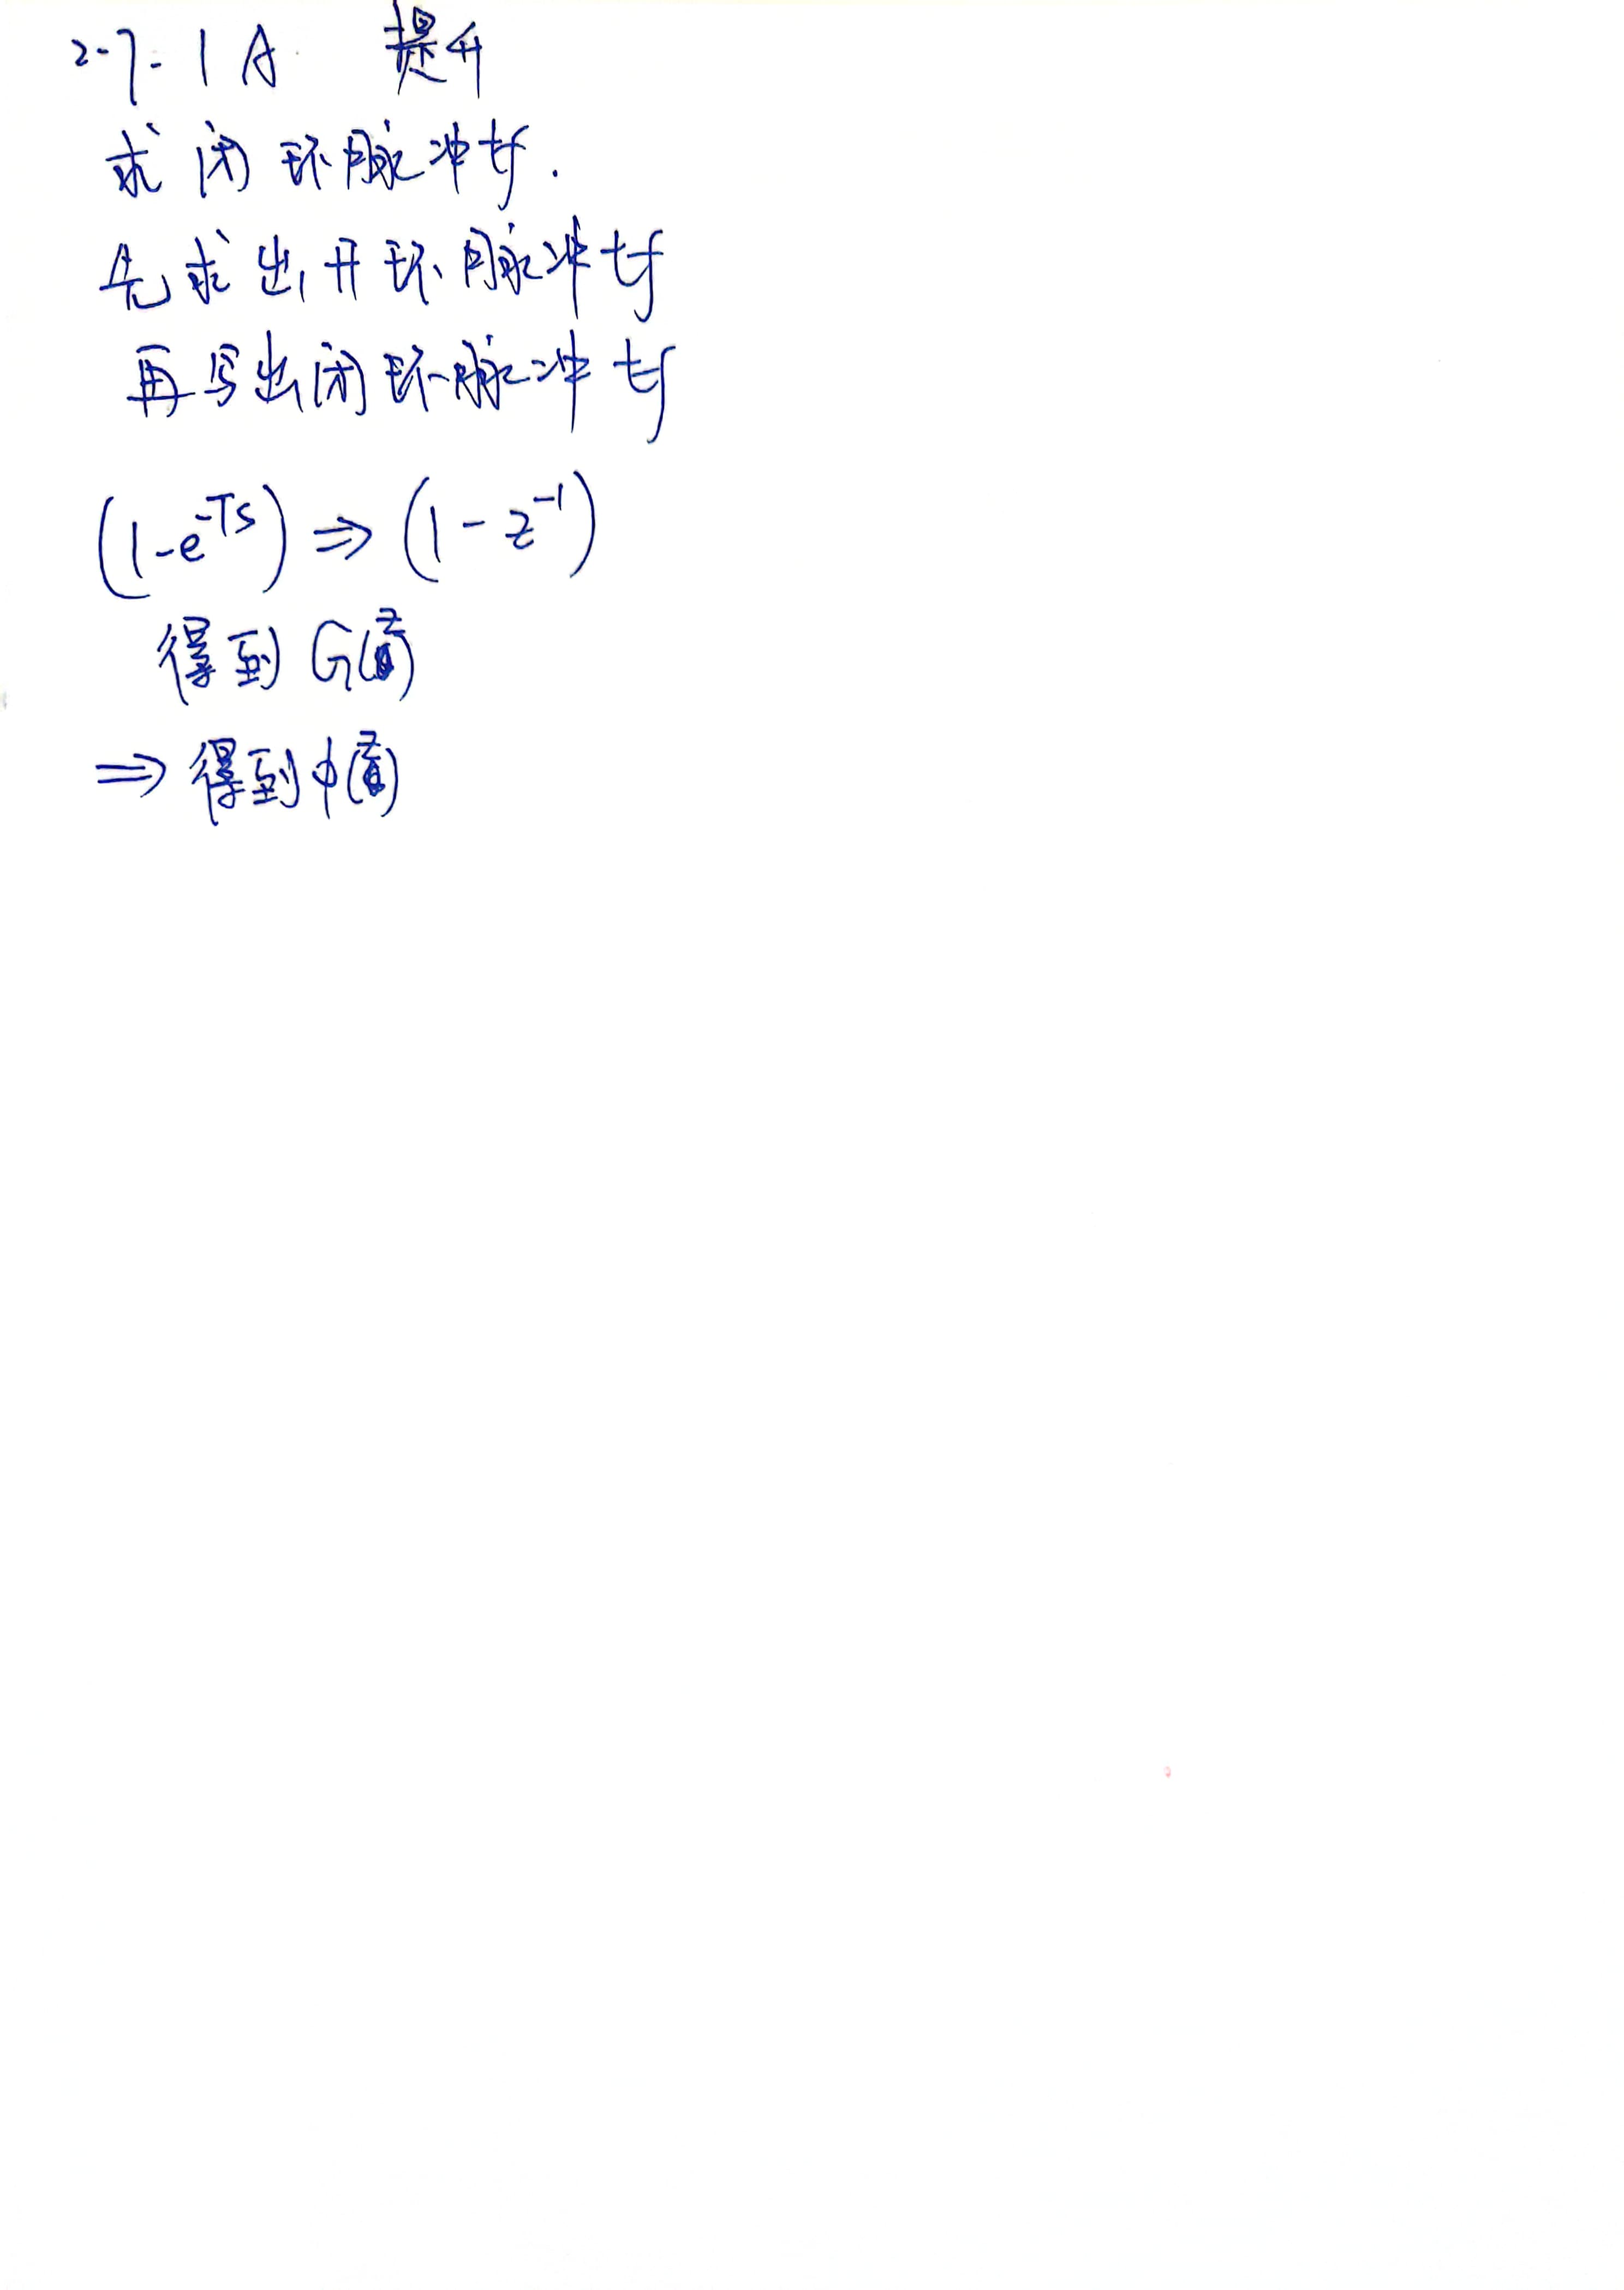 2-7-1 A 提升
求闭环脉冲tf.
先求出开环脉冲tf
再写出闭环脉冲tf
(1-e^{-Ts}) ⇒ (1-z^{-1})
得到G(z)
⇒ 得到φ(z)